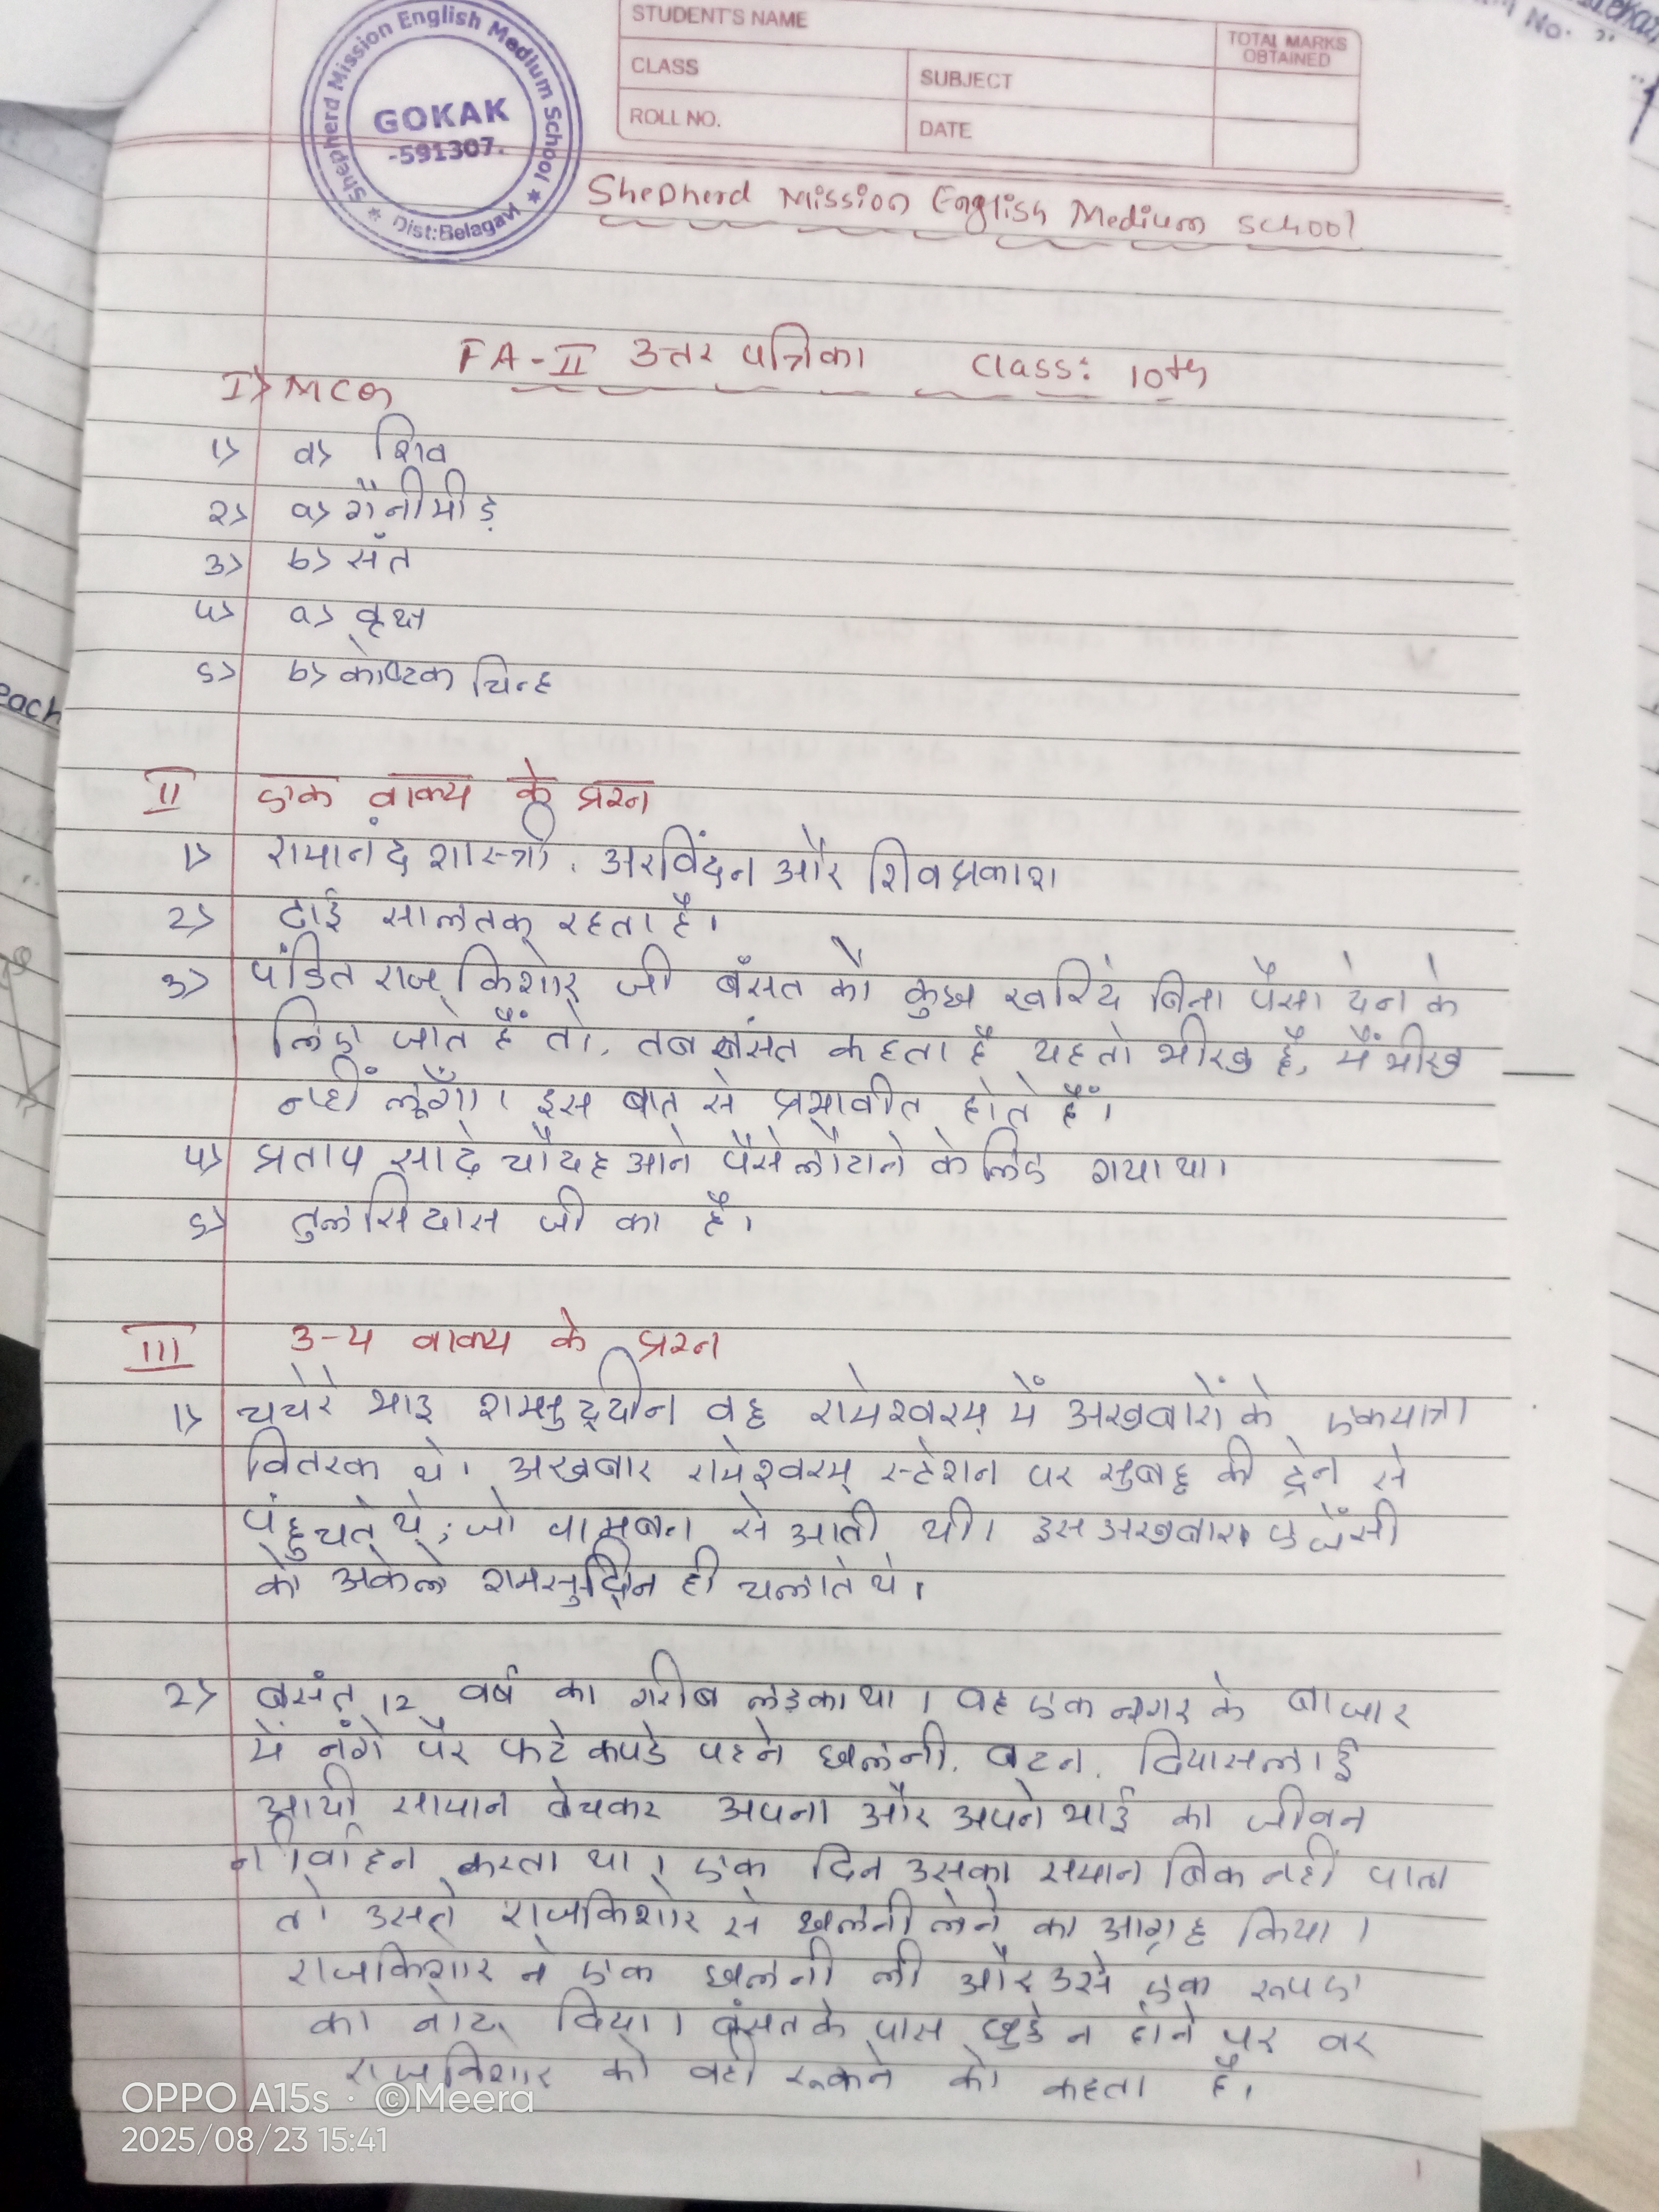 STUDENT'S NAME
TOTAL MARKS
OBTAINED
CLASS
SUBJECT
ROLL NO.
DATE
Shepherd Mission English Medium School
GOKAK
-591307.
Dist:Belagavi
No.
each
Shepherd Mission English Medium School
FA-II उत्तर पत्रिका Class: 10th
I> MCQ
1> a> शिव
2> a> गैनीमीड़
3> b> संत
4> a> वृक्ष
5> b> कोष्टक चिन्ह
II एक वाक्य के प्रश्न
1> रामानंद शास्त्री, अरविंदन और शिवप्रकाश
2> ढाई सालतक रहता है।
3> पंडित राज किशोर जी बंसत को कुछ खरिदे बिना पैसा देन के
लिए जाते हैं तो, तब बंसत कहता है यहतो भीख है, मैं भीख
नहीं लूँगा। इस बात से प्रभावीत होते हैं।
4> प्रताप साढ़े चौदह आने पैसे लौटाने के लिए गया था।
5> तुलसिदास जी का है।
III 3-4 वाक्य के प्रश्न
1> चचेरे भाइ शमसुद्दीन वह रामेश्वरम् में अखबारों के एकमात्रा
वितरक थे। अखबार रामेश्वरम् स्टेशन पर सुबह की ट्रेन से
पंहुचते थे, जो पामबन से आती थी। इस अखबार एजेंसी
को अकेले शमसुद्दिन ही चलाते थे।
2> बसंत 12 वर्ष का गरीब लड़का था। वह एक नगर के बाजार
में नंगे पैर फटे कपडे पहने छलनी, बटन, दियासलाई
आदी सामान बेचकर अपना और अपने भाई का जीवन
नीर्वाहन करता था। एक दिन उसका समान बिक नहीं पाता
तो उसने राजकिशोर से छलनी लेने का आग्रह किया।
राजकिशोर ने एक छलनी ली और उसे एक रूपए
का नोट दिया। बंसत के पास छुडे न होने पर वर
राजकिशोर को वही रूकने को कहता है।
OPPO A15s · ©Meera
2025/08/23 15:41